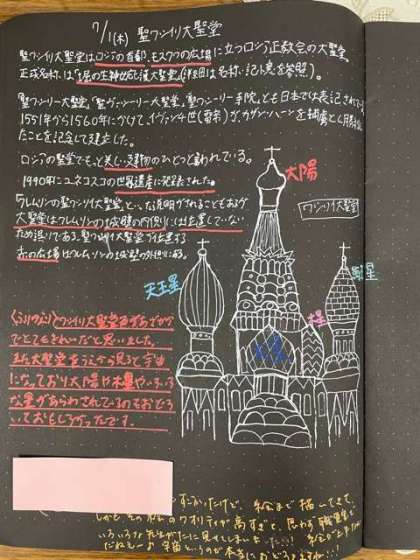 7/1(木) 聖ワシリイ大聖堂
聖ワシリイ大聖堂はロシアの首都、モスクワの広場に立つロシア正教会の大聖堂。
正式名称は「堀の生神女庇護大聖堂」(詳細は名称・記
「聖ワシーリー大聖堂」「聖ヴァシーリー大聖堂」「聖ワシーリー寺院」とも日本では表記されて
1551年から1560年にかけて、イヴァン4世(雷帝)がカザン・ハーンを捕虜とし勝利し
たことを記念して建立した。
ロシアの聖堂でもっと美しい建物のひとつと言われている。
1990年にユネスコの世界遺産に発表された。
クレムリンの聖ワシリイ大聖堂といった説明がされることもあるが
大聖堂はクレムリンの城壁の内側には位置していない
ため誤りである。聖ワシリイ大聖堂が位置する
赤の広場はクレムリンの城壁の外側にある。
太陽
ワシリイ大聖堂
天王星
木星
てとてもきれいだと思いました。
また大聖堂をうえから見ると宇宙
になっており太陽や木星やいろいろ
な星があらわされているのもおどろい
ておもしろかったです。
すごかったけど、
しかも、その絵のクオリティが高すぎて、思わず職員室で
いろいろな先生がたに見せてしまいました